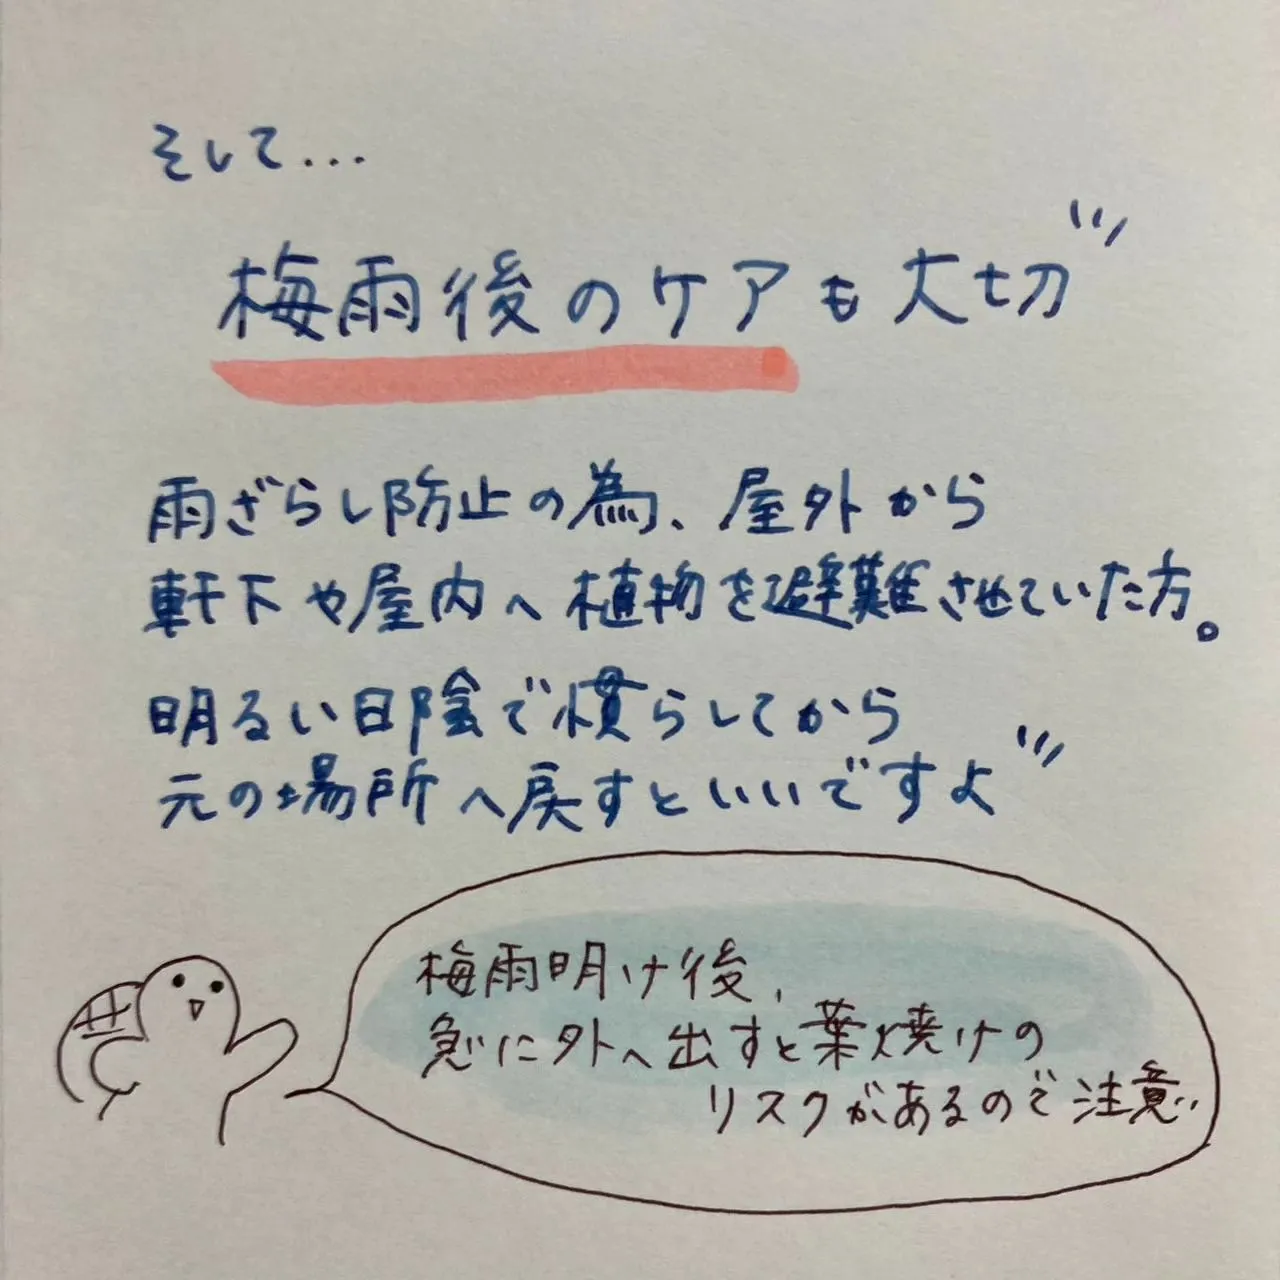 そして...
梅雨後のケアも大切
雨ざらし防止の為、屋外から
軒下や屋内へ植物を避難させていた方。
明るい日陰で慣らしてから
元の場所へ戻すといいですよ
梅雨明け後、
急に外へ出すと葉焼けの
リスクがあるので注意..